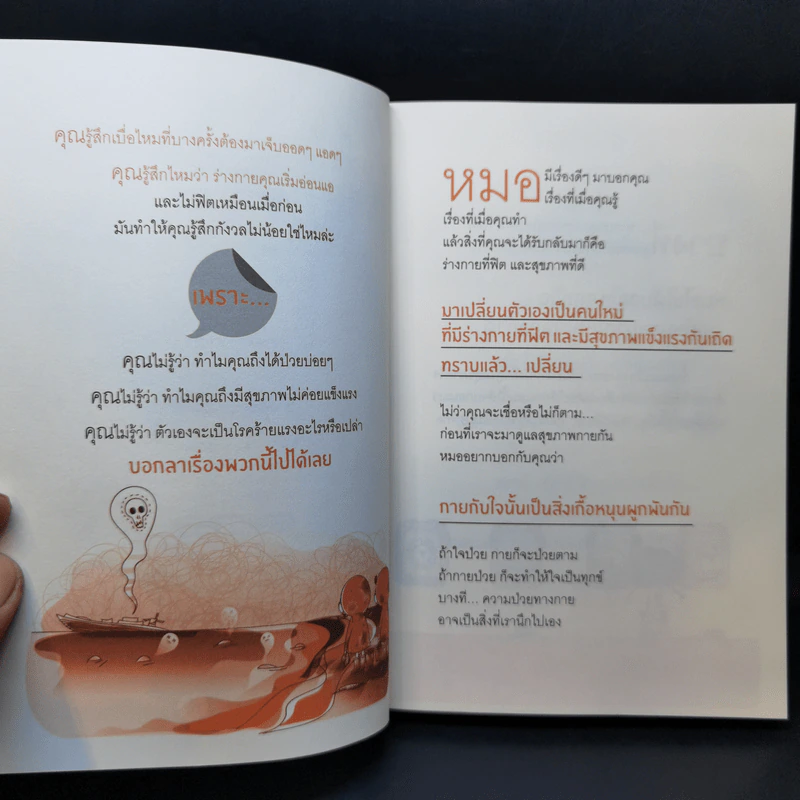 คุณรู้สึกเบื่อไหมที่บางครั้งต้องมาเจ็บออดๆ แอดๆ
คุณรู้สึกไหมว่า ร่างกายคุณเริ่มอ่อนแอ
และไม่ฟิตเหมือนเมื่อก่อน
มันทำให้คุณรู้สึกกังวลไม่น้อยใช่ไหมล่ะ
เพราะ...
คุณไม่รู้ว่า ทำไมคุณถึงได้ป่วยบ่อยๆ
คุณไม่รู้ว่า ทำไมคุณถึงมีสุขภาพไม่ค่อยแข็งแรง
คุณไม่รู้ว่า ตัวเองจะเป็นโรคร้ายแรงอะไรหรือเปล่า
บอกลาเรื่องพวกนี้ไปได้เลย
หมอ มีเรื่องดีๆ มาบอกคุณ
เรื่องที่เมื่อคุณรู้
เรื่องที่เมื่อคุณทำ
แล้วสิ่งที่คุณจะได้รับกลับมาก็คือ
ร่างกายที่ฟิต และสุขภาพที่ดี
มาเปลี่ยนตัวเองเป็นคนใหม่
ที่มีร่างกายที่ฟิต และมีสุขภาพแข็งแรงกันเถิด
ทราบแล้ว... เปลี่ยน
ไม่ว่าคุณจะเชื่อหรือไม่ก็ตาม...
ก่อนที่เราจะมาดูแลสุขภาพกายกัน
หมออยากบอกกับคุณว่า
กายกับใจนั้นเป็นสิ่งเกื้อหนุนผูกพันกัน
ถ้าใจป่วย กายก็จะป่วยตาม
ถ้ากายป่วย ก็จะทำให้ใจเป็นทุกข์
บางที... ความป่วยทางกาย
อาจเป็นสิ่งที่เรานึกไปเอง